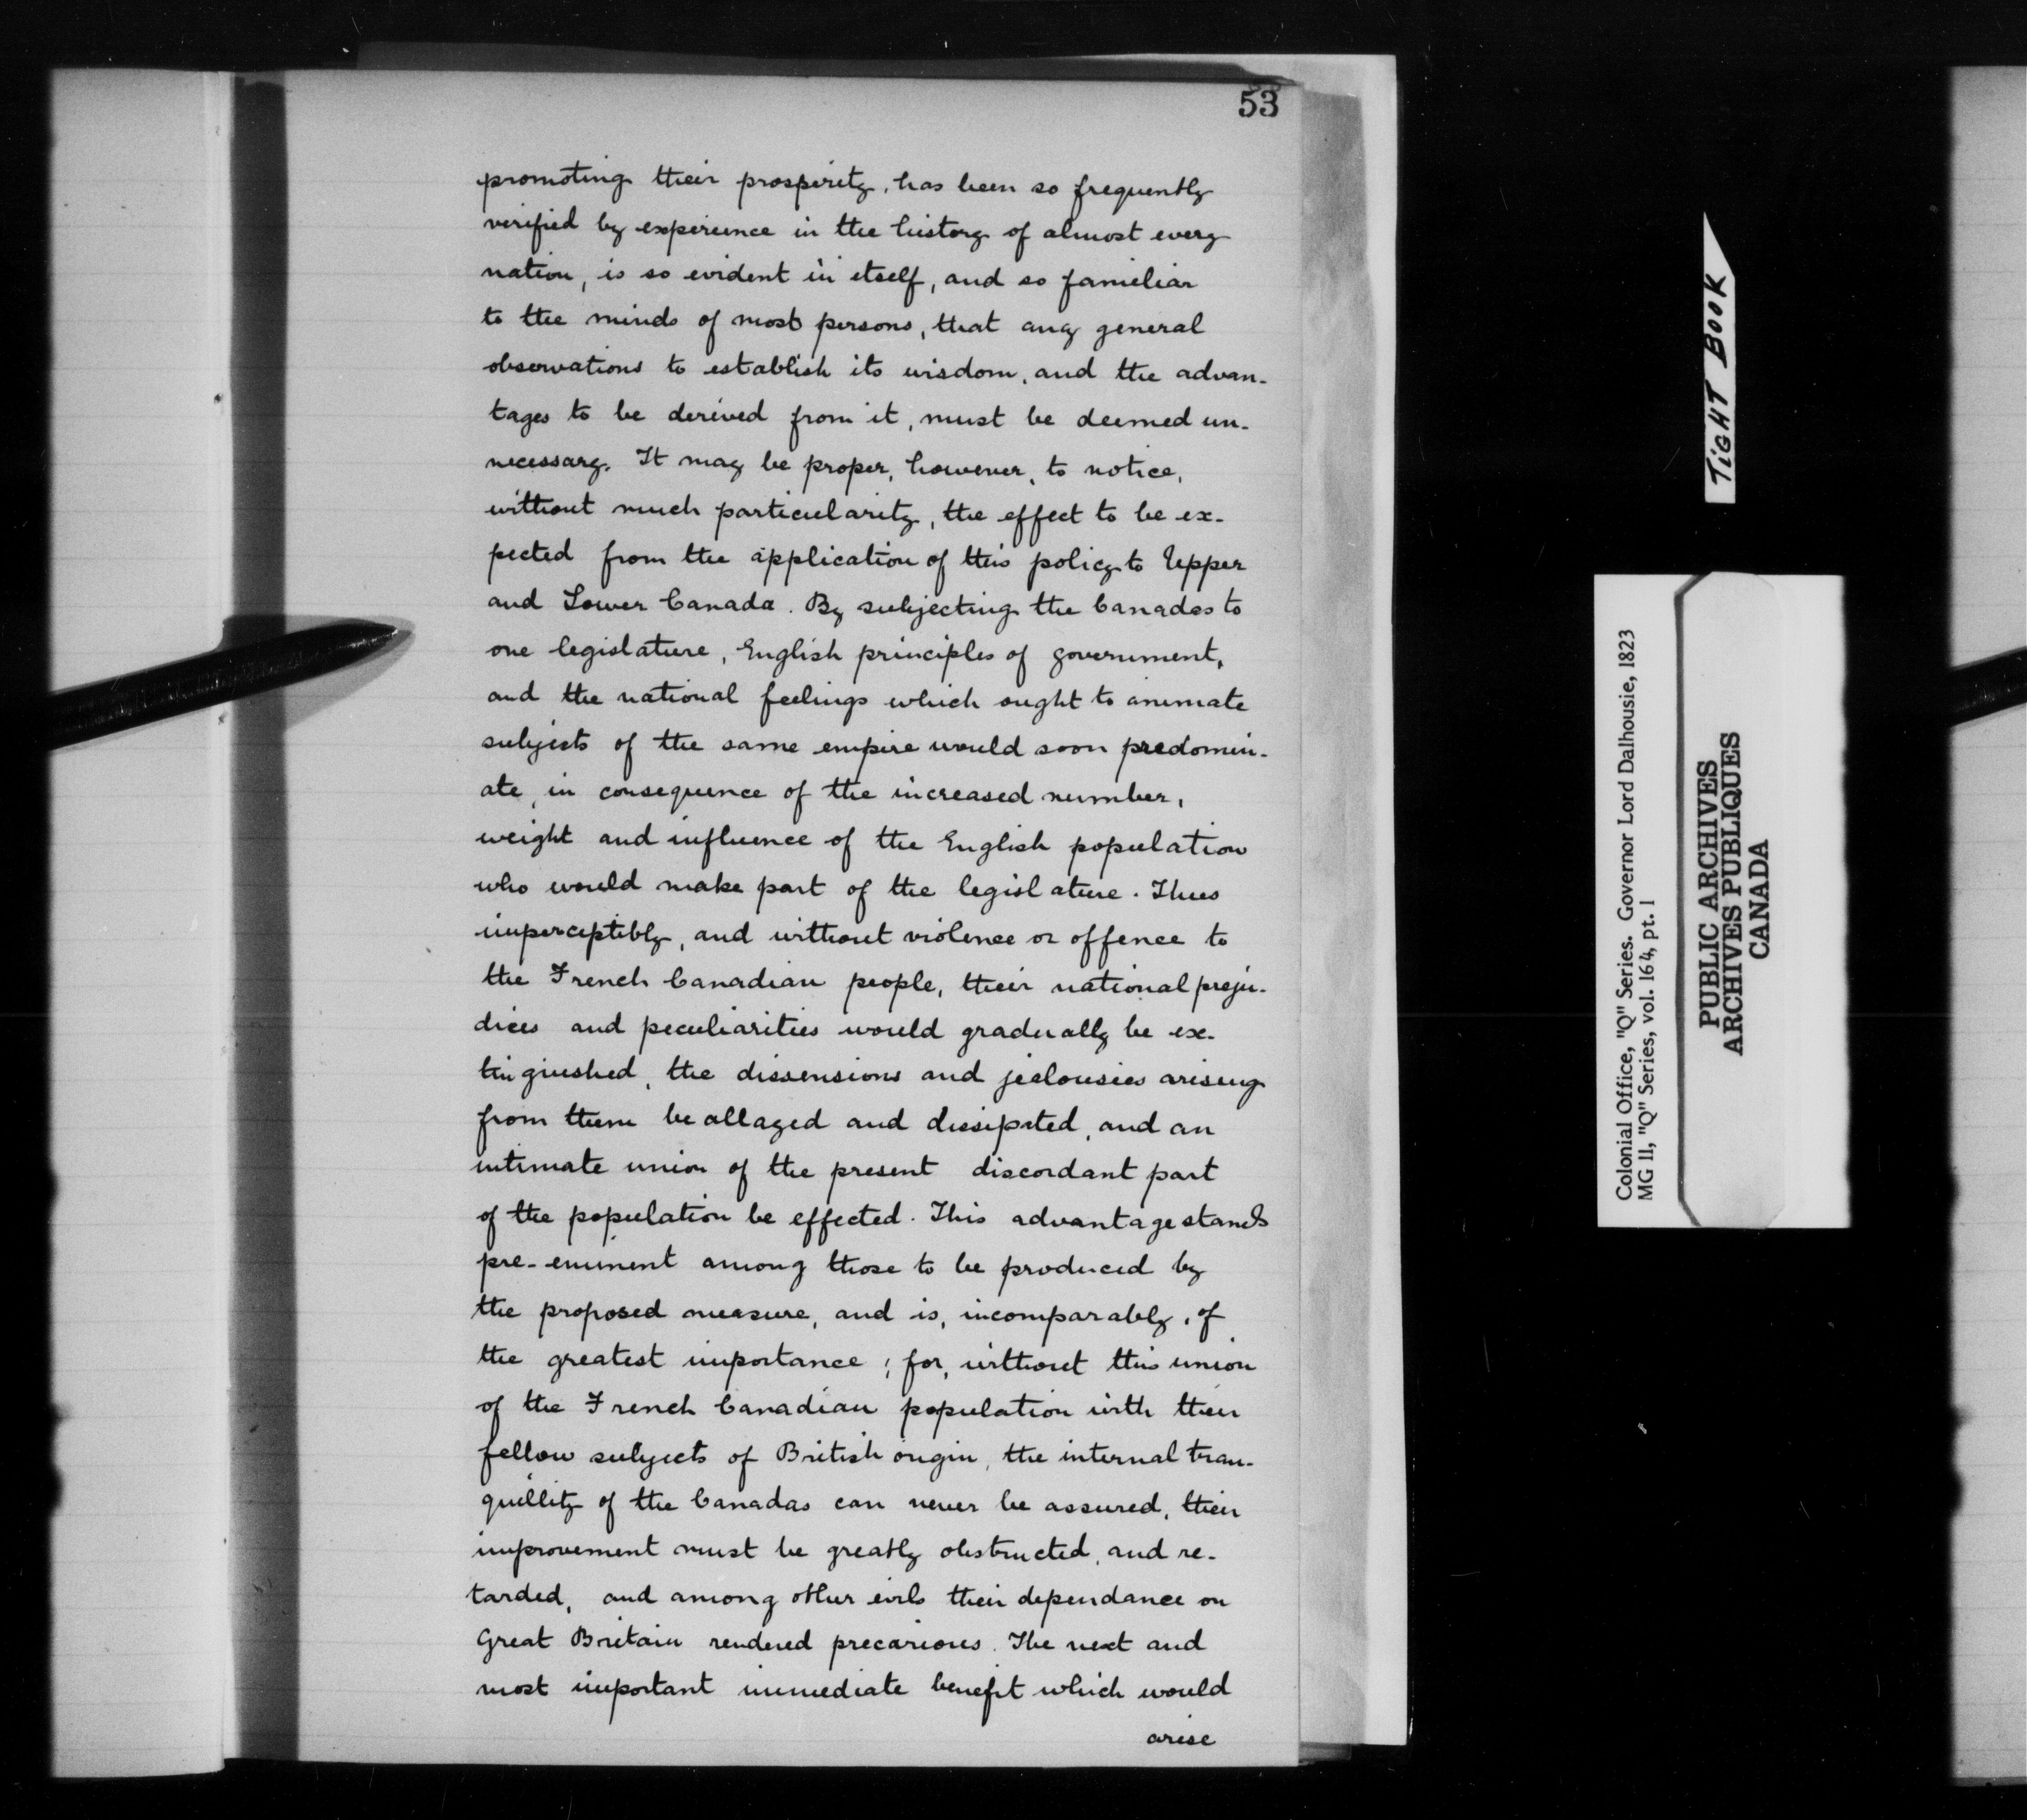 53
promoting their prosperity, has been so frequently
verified by experience in the history of almost every
nation, is so evident in itself, and so familiar
to the minds of most persons, that any general
observations to establish its wisdom, and the advan-
tages to be derived from it, must be deemed un-
necessary. It may be proper, however, to notice,
without much particularity, the effect to be ex-
pected from the application of this policy to Upper
and Lower Canada. By subjecting the Canadas to
one legislature, English principles of government,
and the national feelings which ought to animate
subjects of the same empire would soon predomin-
ate, in consequence of the increased number,
weight and influence of the English population
who would make part of the legislature. Thus
imperceptibly, and without violence or offence to
the French Canadian people, their national preju-
dices and peculiarities would gradually be ex-
tinguished, the dissensions and jealousies arising
from them be allayed and dissipated, and an
intimate union of the present discordant part
of the population be effected. This advantage stands
pre-eminent among those to be produced by
the proposed measure, and is, incomparably, of
the greatest importance; for, without this union
of the French Canadian population with their
fellow subjects of British origin, the internal tran-
quillity of the Canadas can never be assured, their
improvement must be greatly obstructed, and re-
tarded, and among other evils their dependance on
Great Britain rendered precarious. The next and
most important immediate benefit which would
arise
TIGHT BOOK
Colonial Office, "Q" Series. Governor Lord Dalhousie, 1823
MG 11, "Q" Series, vol. 164, pt. 1
PUBLIC ARCHIVES
ARCHIVES PUBLIQUES
CANADA